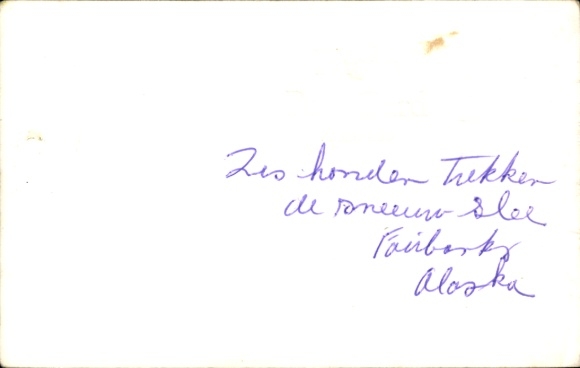 Zes honden trekken
de sneeuw slee
Fairbanks
Alaska